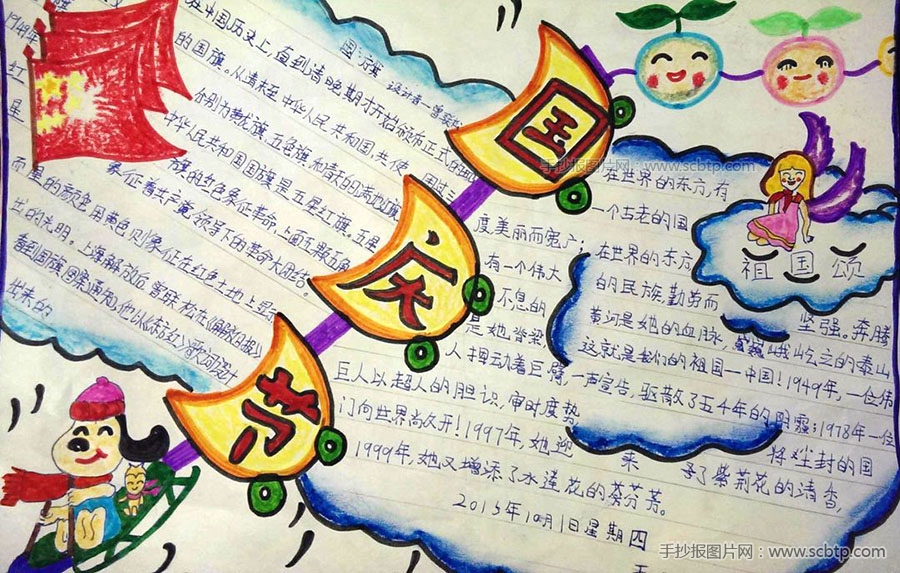 国
庆
节
国旗
设计者—曾联松
在中国历史上,直到清晚期才开始颁布正式的国旗
的国旗。从清末至中华人民共和国,共使
分别为黄龙旗、五色旗和青
中华人民共和国国旗是五星红旗,五星
旗的红色象征革命,上面五颗五角
象征着共产党领导下的革命大团结。
而星的颜色用黄色则象征在红色土地上显
出的光明。上海解放后曾联松在《解放日报》
看到国旗图案通知,他从《东方红》歌词设计
出来的
1949年
红
星
祖国颂
在世界的东方,有
一个古老的国
度美丽而宽广;
在世界的东方
有一个伟大
的民族勤劳而
坚强。奔腾
不息的
黄河是她的血脉,巍巍峨屹立的泰山
是她脊梁
这就是我们的祖国—中国!1949年,一位伟
人挥动着巨臂,一声宣告,驱散了五千年的阴霾;1978年一位
巨人以超人的胆识,审时度势
将尘封的国
门向世界尚久开!1997年,她迎
来
了紫荆花的清香,
1999年,她又增添了水莲花的芬芳。
2015年10月1日星期四
手抄报图片网:www.scbtp.com
手抄报图片网:www.scbtp.com